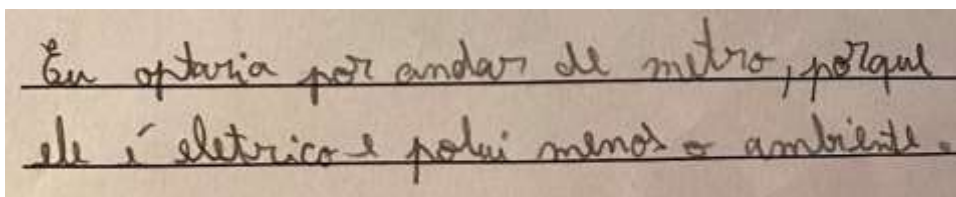 Eu optaria por andar de metro, porque
ele é eletrico e polui menos o ambiente.